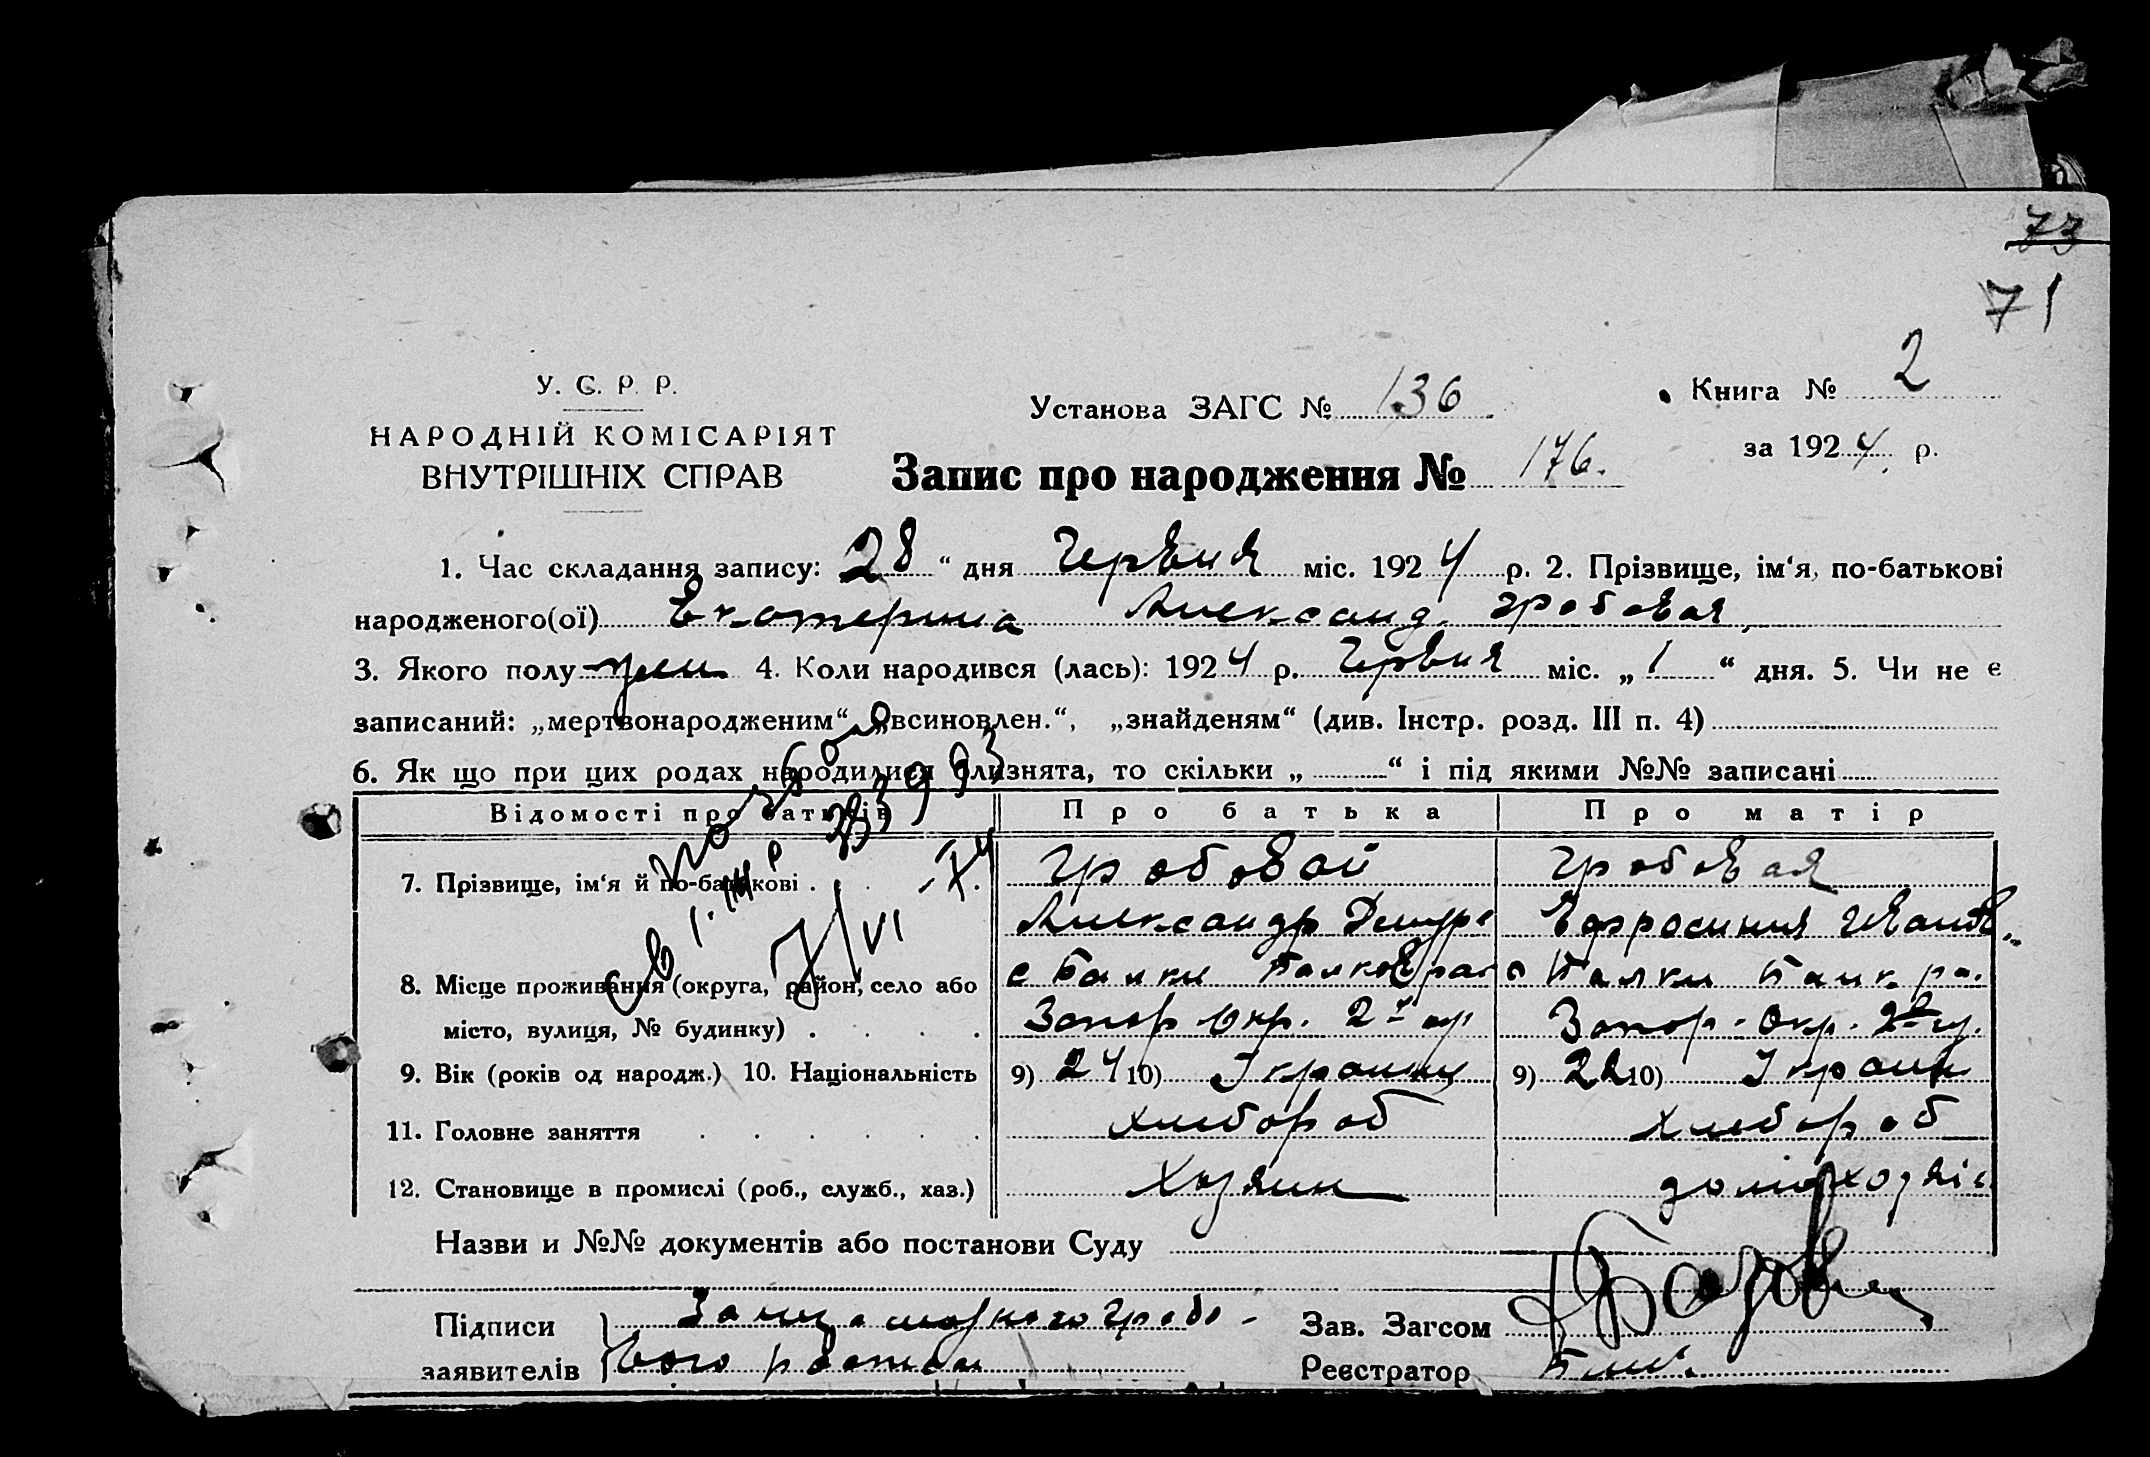 73
71
У. С. Р. Р.
НАРОДНІЙ КОМІСАРІЯТ
ВНУТРІШНІХ СПРАВ
Установа ЗАГС № 136
Книга № 2
за 1924 р.
Запис про народження № 176.
1. Час складання запису: 28 “ дня Червня міс. 1924 р. 2. Прізвище, ім‘я, по-батькові
народженого(ої) Екатерина Александ. Гробовая
3. Якого полу жен 4. Коли народився (лась): 1924 р. Червня міс. „ 1 “ дня. 5. Чи не є
записаний: „мертвонародженим“ „овсиновлен.“, „знайденям“ (див. Інстр. розд. III п. 4)
6. Як що при цих родах народилися близнята, то скільки „ “ і під якими №№ записані
Відомості про батьків Про батька Про матір
7. Прізвище, ім‘я й по-батькові Гробовой Гробовая
Александр Дмитр Ефросиния Иванов
8. Місце проживання (округа, район, село або с Балки Балков ра с Балки Балк. ра.
місто, вулиця, № будинку) Запор. Окр. 2 Запор. Окр. 2
9. Вік (років од народж.) 10. Національність 9) 24 10) Украинц 9) 22 10) Украин
11. Головне заняття хлебороб хлебороб
12. Становище в промислі (роб., служб., хаз.) Хозяин домохозяік
Назви и №№ документів або постанови Суду
Підписи За негр Гробо-
заявителів вого
Зав. Загсом
Реєстратор